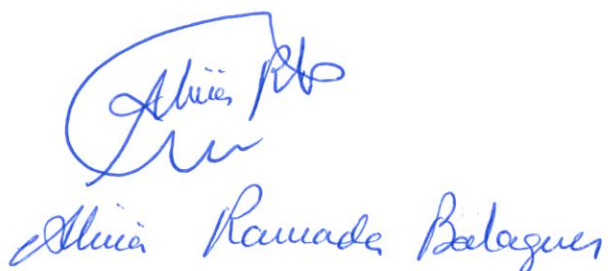 Alicia
Alicia Ramada Balaguer